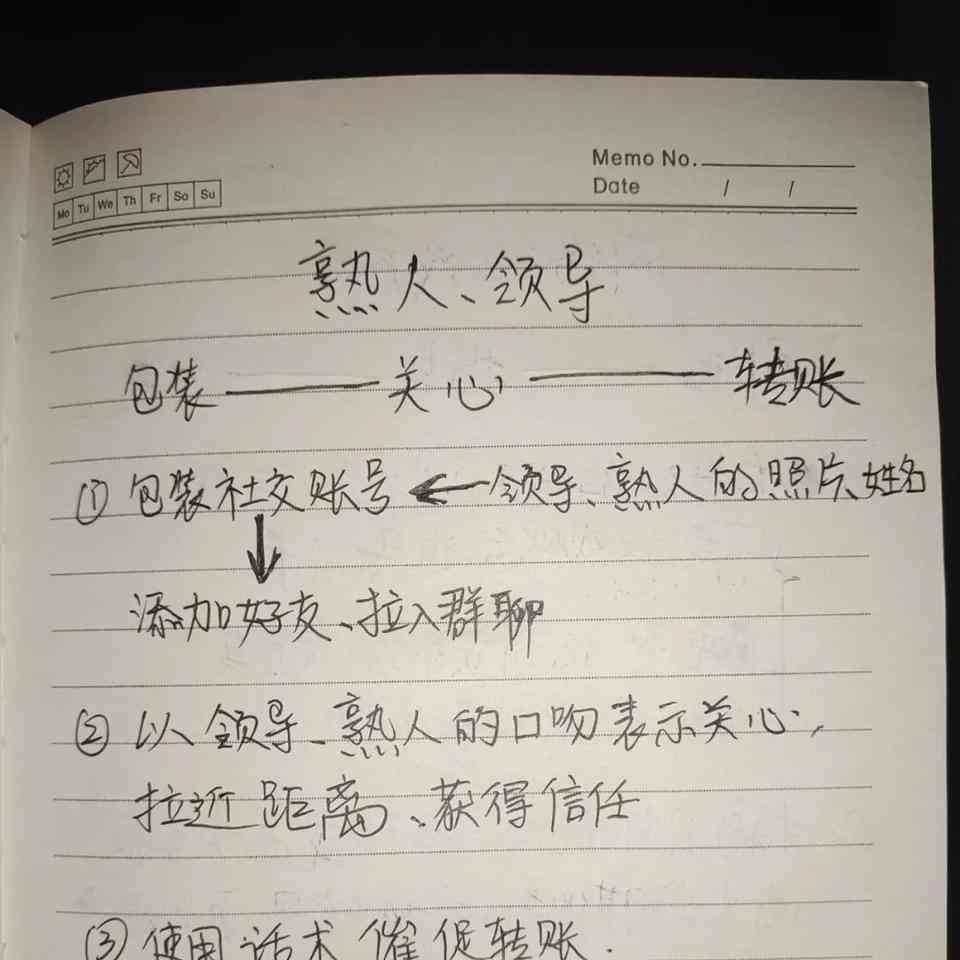 Memo No.
Date / /
Mo Tu We Th Fr Sa Su
熟人、领导
包装——关心——转账
① 包装社交账号 ← 领导、熟人的照片、姓名
↓
添加好友、拉入群聊
② 以领导、熟人的口吻表示关心,
拉近距离、获得信任
③ 使用话术催促转账.